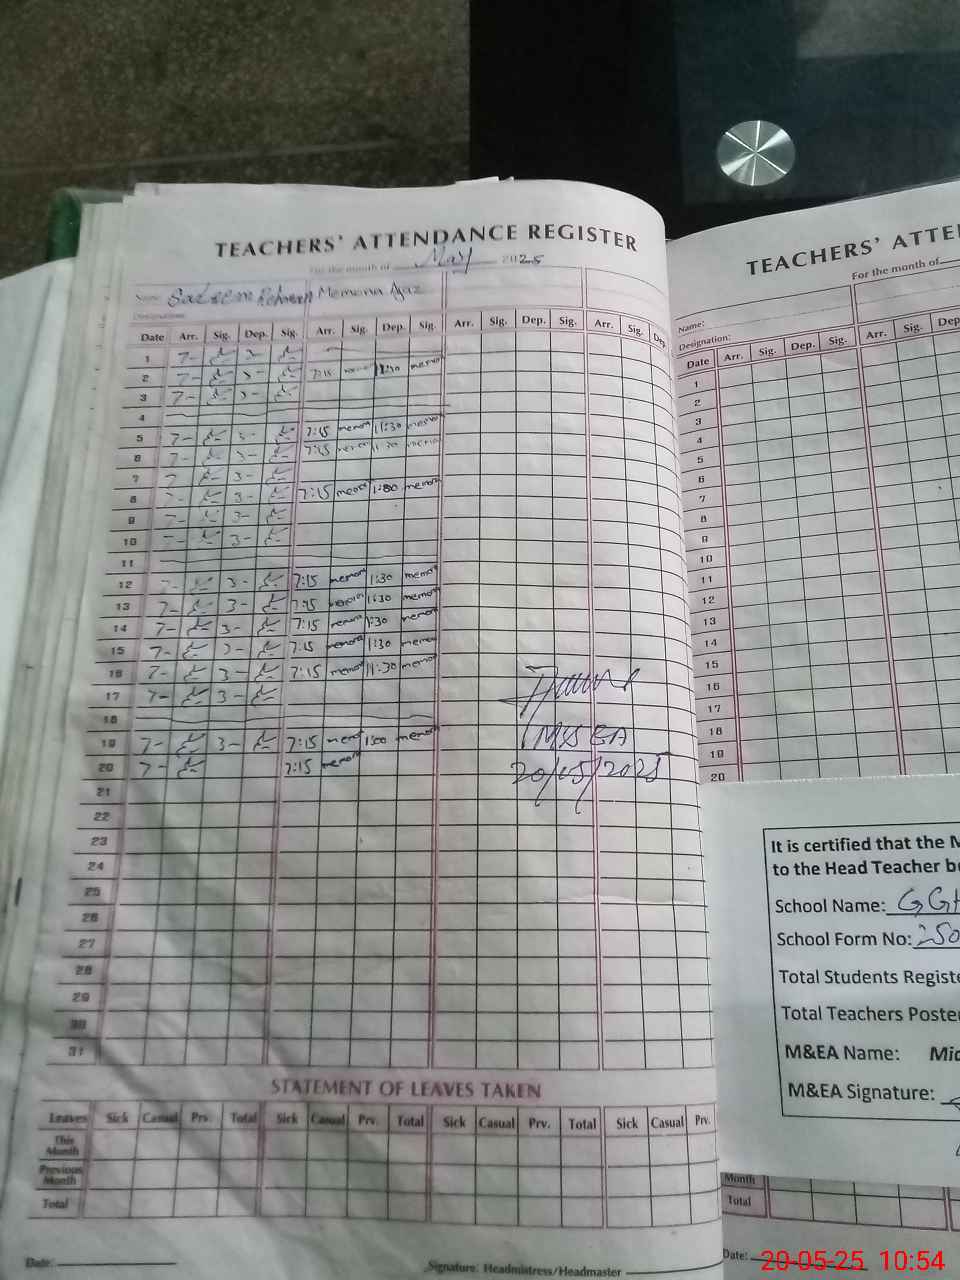 TEACHERS' ATTENDANCE REGISTER
For the month of May 2025
Name: Rehman Memona Ajaz
Designation:
Date Arr. Sig. Dep. Sig. Arr. Sig. Dep. Sig. Arr. Sig. Dep. Sig. Arr. Sig. Dep.
1 7-
2 7- 7:15 11:30
3 7-
4
5 7- 3- 7:15 memon 11:30 memon
6 7- 7:15 11:30
7 7 3-
8 7- 3- 7:15 memon memon
9 7- 3-
10 7- 3-
11
12 7- 3- 7:15 memon 1:30 memon
13 7- 3- 7:15 memon 1:30 memon
14 7- 3- 7:15 memon 1:30 memon
15 7- 7:15 memon 1:30 memon
16 7- 3- 7:15 memon 11:30 memon
17 7- 3-
18
19 7- 3- 7:15 memon 1:00 memon
20 7- 7:15 memon
21
22
23
24
25
26
27
28
29
30
31
20/05/2025
STATEMENT OF LEAVES TAKEN
Leaves Sick Casual Prv. Total Sick Casual Prv. Total Sick Casual Prv. Total Sick Casual Prv.
This Month
Previous Month
Total
Date:
Signature: Headmistress/Headmaster
TEACHERS' ATTE
For the month of
Name:
Designation:
Date Arr. Sig. Dep. Sig. Arr. Sig. Dep
1
2
3
4
5
6
7
8
9
10
11
12
13
14
15
16
17
18
19
20
It is certified that the M
to the Head Teacher b
School Name: GGH
School Form No: 250
Total Students Registe
Total Teachers Poste
M&EA Name: Mid
M&EA Signature:
Month
Total
Date:
20-05-25 10:54